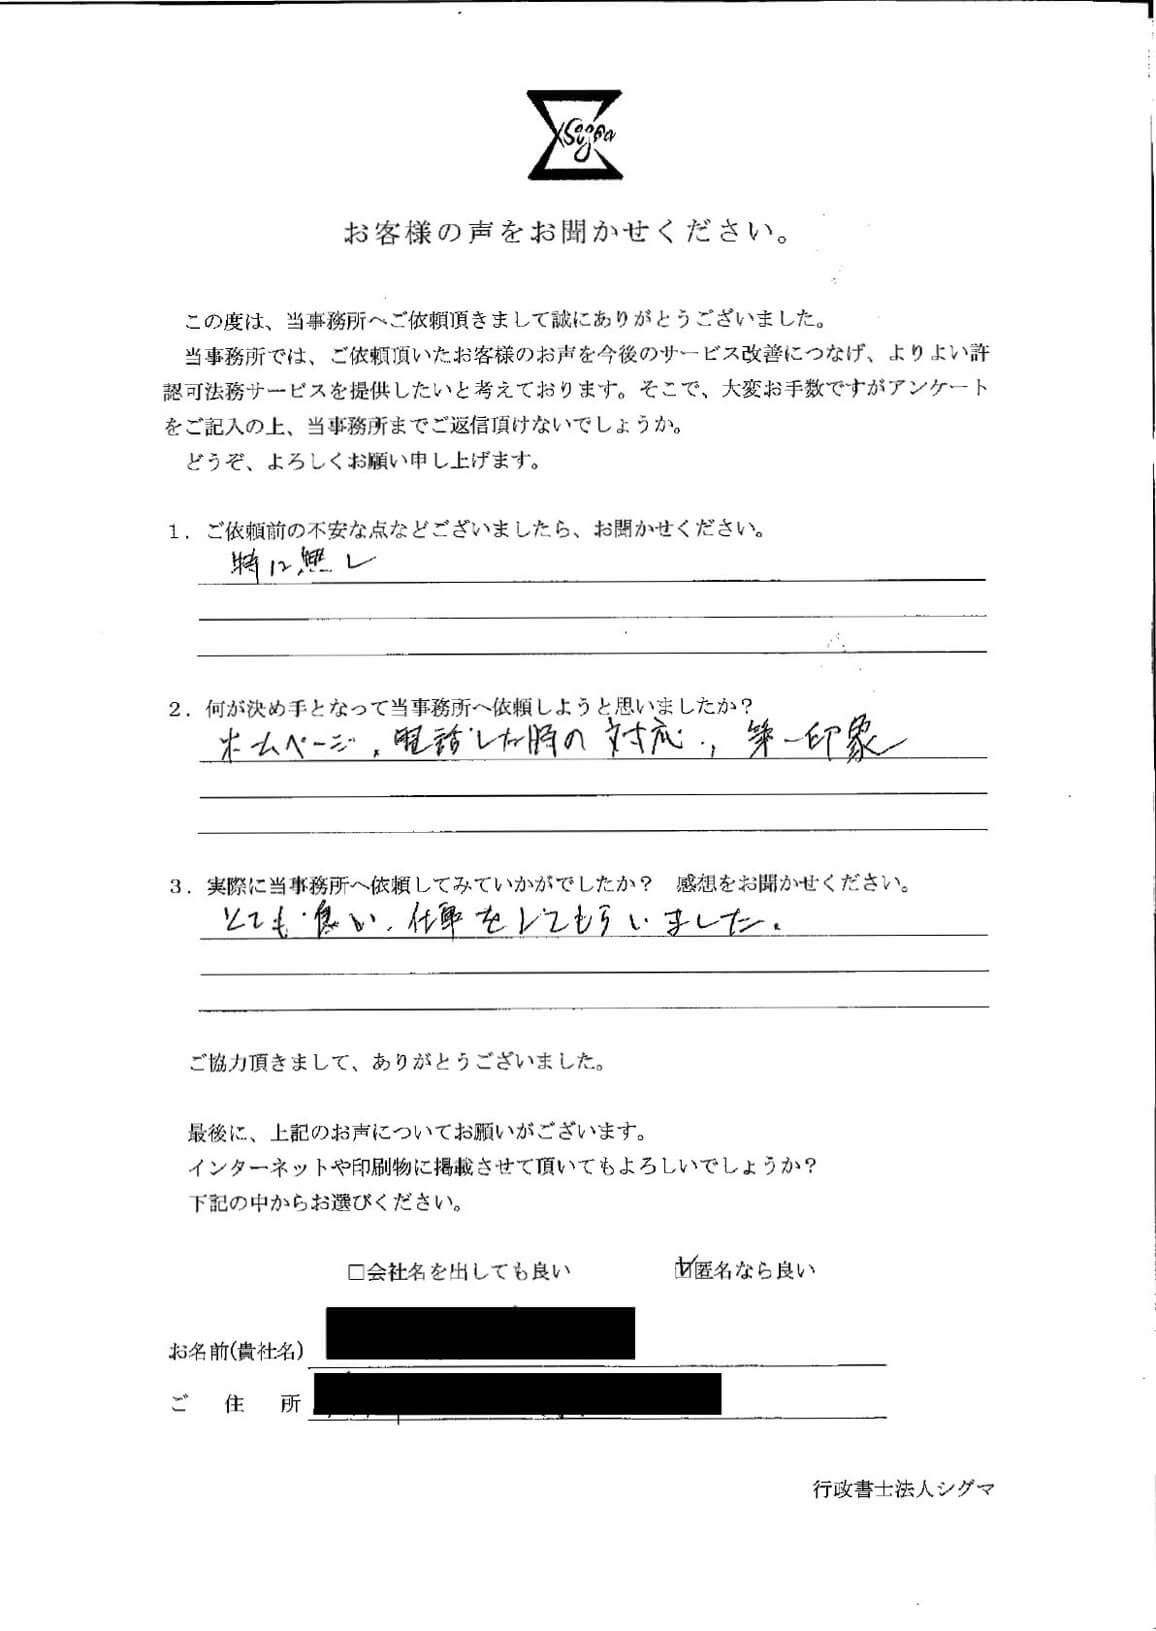 Sigma
お客様の声をお聞かせください。
この度は、当事務所へご依頼頂きまして誠にありがとうございました。
当事務所では、ご依頼頂いたお客様のお声を今後のサービス改善につなげ、よりよい許
認可法務サービスを提供したいと考えております。そこで、大変お手数ですがアンケート
をご記入の上、当事務所までご返信頂けないでしょうか。
どうぞ、よろしくお願い申し上げます。
1．ご依頼前の不安な点などございましたら、お聞かせください。
特に無し
2．何が決め手となって当事務所へ依頼しようと思いましたか？
ホームページ、電話した時の対応、第一印象
3．実際に当事務所へ依頼してみていかがでしたか？　感想をお聞かせください。
とても良い、仕事をしてもらいました。
ご協力頂きまして、ありがとうございました。
最後に、上記のお声についてお願いがございます。
インターネットや印刷物に掲載させて頂いてもよろしいでしょうか？
下記の中からお選びください。
□会社名を出しても良い　☑匿名なら良い
お名前(貴社名)
ご　住　所
行政書士法人シグマ